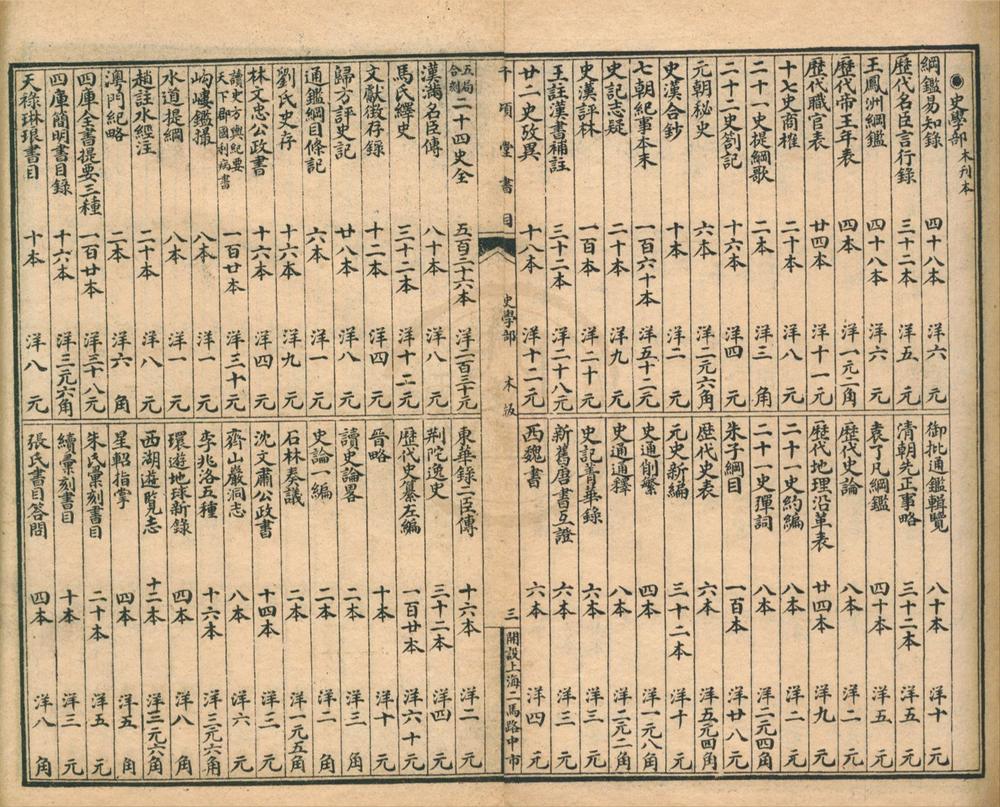 史學部 木刊本
綱鑑易知錄 四十八本 洋六元
歷代名臣言行錄 三十二本 洋五元
王鳳洲綱鑑 四十八本 洋六元
歷代帝王年表 四本 洋一元二角
歷代職官表 廿四本 洋十一元
十七史商榷 二十本 洋八元
二十一史提綱歌 二本 洋三角
二十二史劄記 十六本 洋四元
元朝秘史 六本 洋二元六角
史漢合鈔 十本 洋二元
七朝紀事本末 一百六十本 洋五十二元
史記志疑 二十本 洋九元
史漢評林 一百本 洋二十元
王註漢書補註 三十二本 洋二十八元
廿二史攷異 十八本 洋十二元
御批通鑑輯覽 八十本 洋十元
清朝先正事略 三十二本 洋五元
袁了凡綱鑑 四十本 洋五元
歷代史論 八本 洋二元
歷代地理沿革表 廿四本 洋九元
二十一史約編 八本 洋二元
二十一史彈詞 八本 洋二元四角
朱子綱目 一百本 洋廿八元
歷代史表 六本 洋五元四角
元史新編 三十二本 洋十元
史通削繁 四本 洋一元八角
史通通釋 八本 洋二元二角
史記菁華錄 六本 洋三元
新舊唐書互證 六本 洋三元
西魏書 六本 洋四元
千頃堂書目 史學部 木板 三 開設上海二馬路中市
五局合刻二十四史全 五百三十六本 洋二百三十元
漢滿名臣傳 八十本 洋八元
馬氏繹史 三十二本 洋十二元
文獻徵存錄 十二本 洋四元
歸方評史記 廿八本 洋八元
通鑑綱目條記 六本 洋一元
劉氏史存 十六本 洋九元
林文忠公政書 十六本 洋四元
讀史方輿紀要 天下郡國利病書 一百廿本 洋三十元
岣嶁鑑撮 八本 洋一元
水道提綱 八本 洋一元
趙註水經注 二十本 洋八元
澳門紀略 二本 洋六角
四庫全書提要三種 一百廿本 洋三十八元
四庫簡明書目錄 十六本 洋三元六角
天祿琳琅書目 十本 洋八元
東華錄二臣傳 十六本 洋二元
荆陀逸史 三十二本 洋四元
歷代史纂左編 一百廿本 洋六十元
晉略 十本 洋十元
讀史論畧 二本 洋三角
史論一編 二本 洋二角
石林奏議 二本 洋一元五角
沈文肅公政書 十四本 洋三元
齊山巖洞志 八本 洋六元
李兆洛五種 十六本 洋三元六角
環遊地球新錄 四本 洋八角
西湖遊覧志 十二本 洋二元六角
星軺指掌 四本 洋五角
朱氏彙刻書目 二十本 洋五元
續彙刻書目 十本 洋三元
張氏書目答問 四本 洋八角